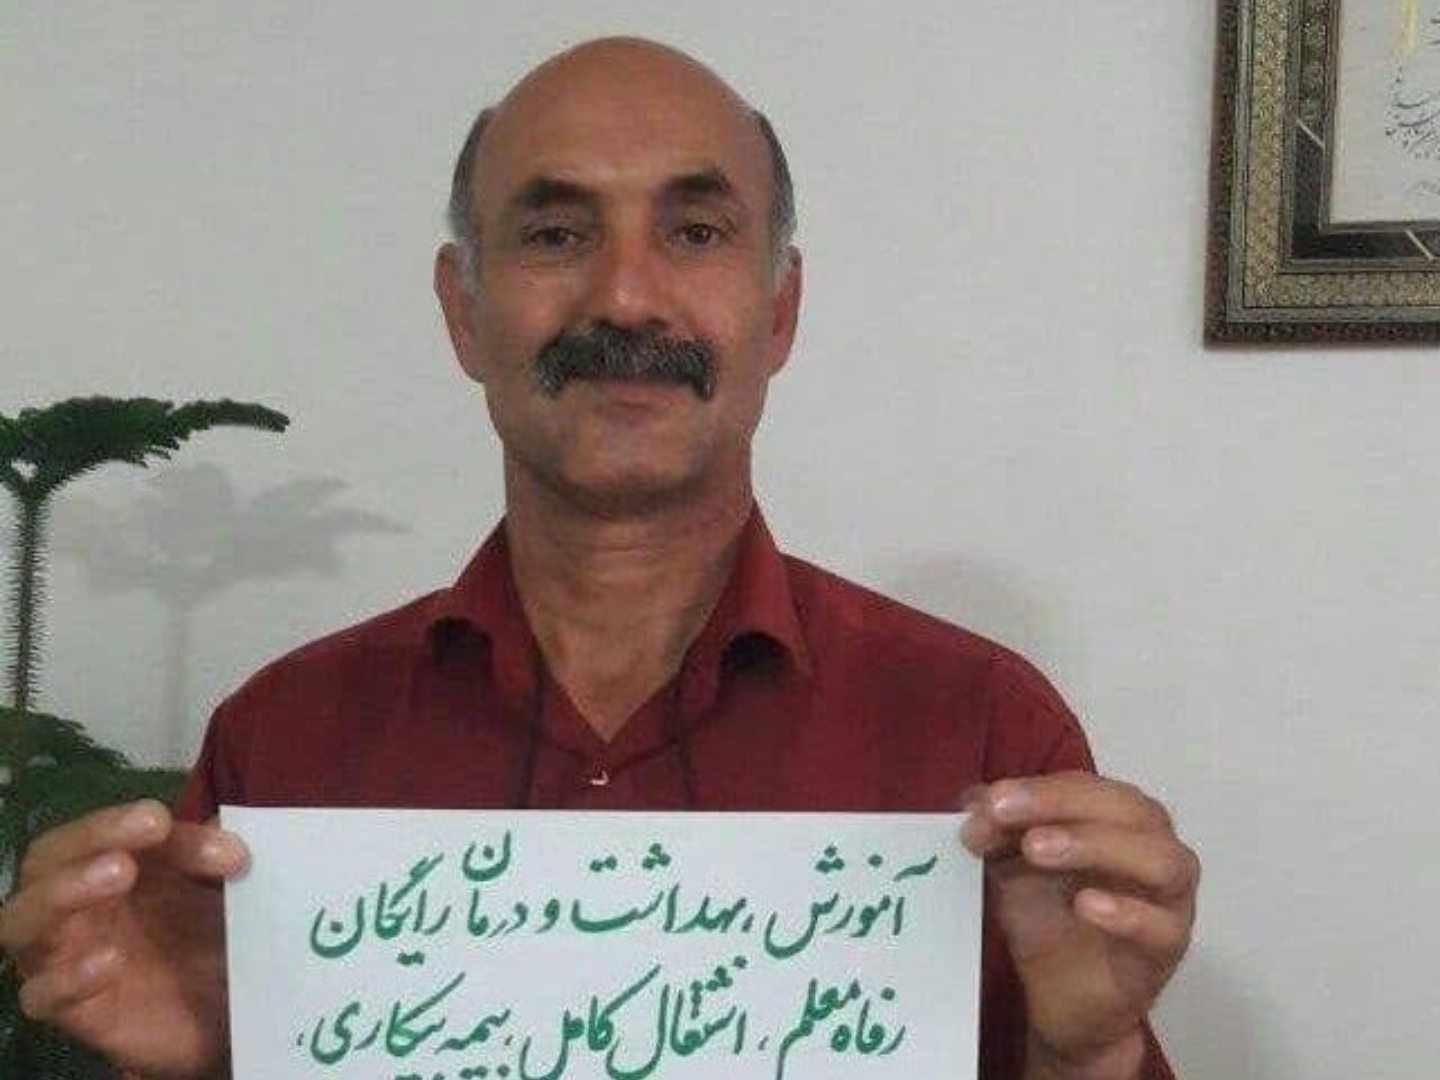 آموزش، بهداشت و درمان رایگان
رفاه معلم، اشتغال کامل، بیمه بیکاری،